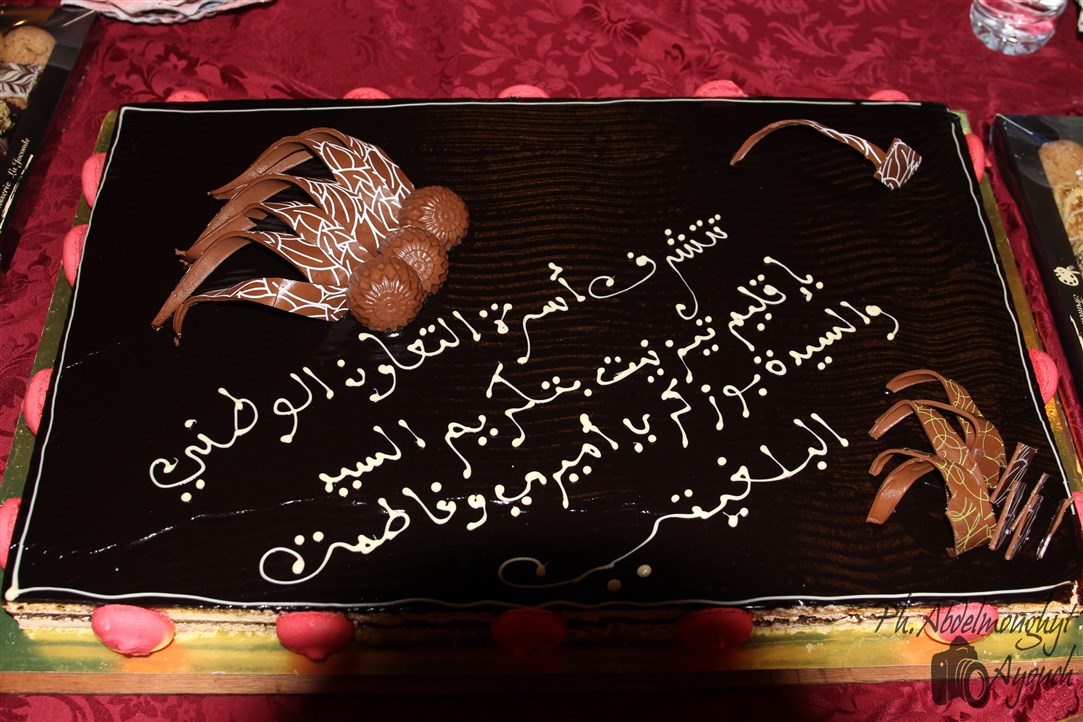 تتشرف أسرة التعاون الوطني
بإقليم تيزنيت بتكريم السيد
والسيدة بوزكري اميري وفاطمة
البلغيتي
Ph. Abdelmoughyt
Ayouch
La Joconde